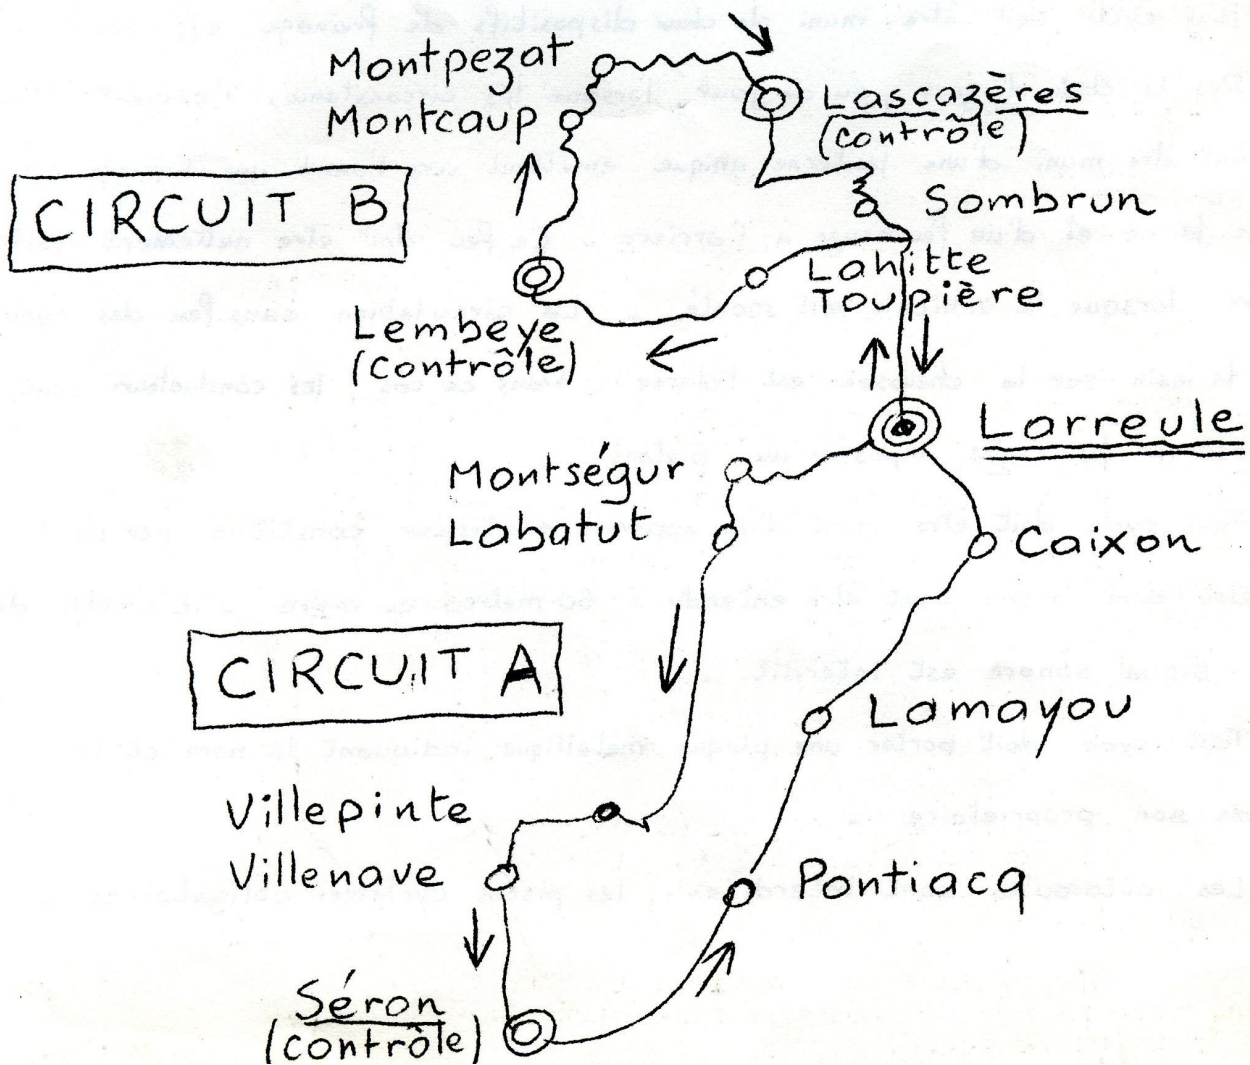 Montpezat
Montcaup
Lascazères
(contrôle)
CIRCUIT B
Sombrun
Lahitte
Toupière
Lembeye
(contrôle)
Larreule
Montségur
Labatut
Caixon
CIRCUIT A
Lamayou
Villepinte
Villenave
Pontiacq
Séron
(contrôle)